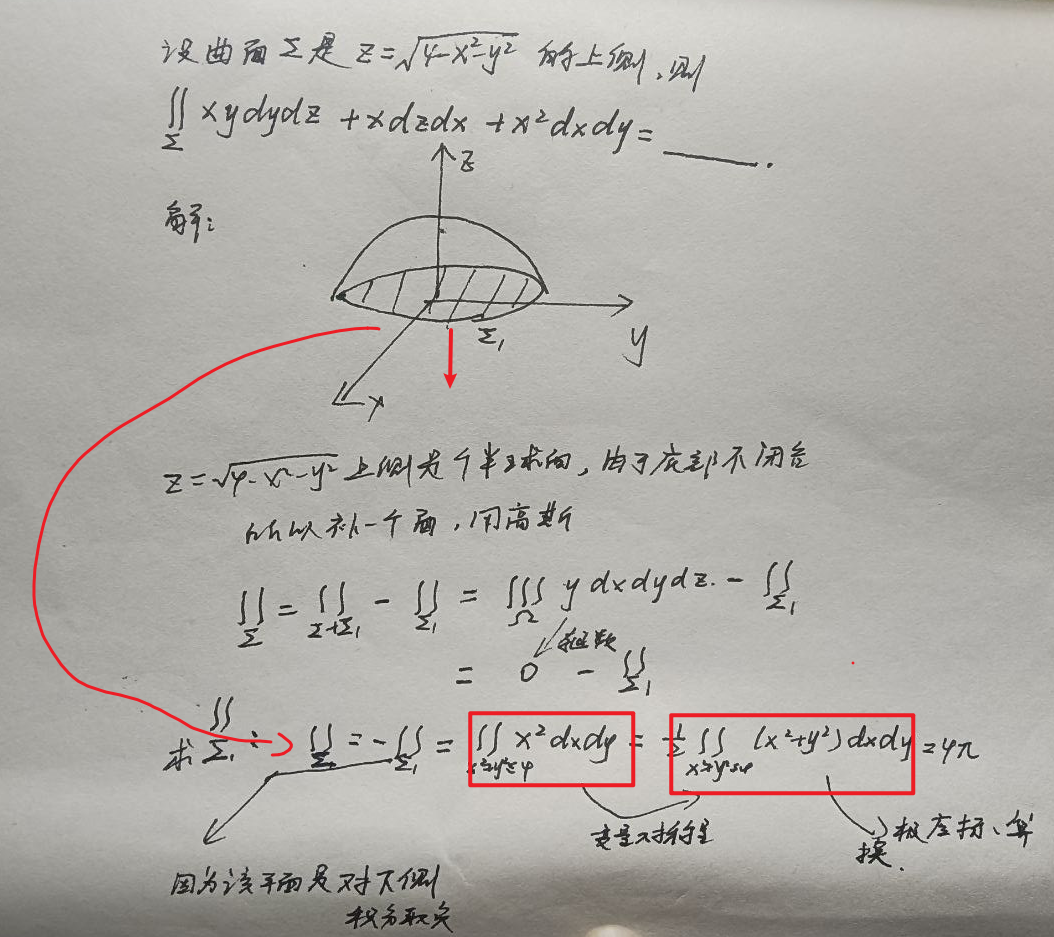 设曲面Σ是 z=√(4-x²-y²) 的上侧,则
∬_Σ xydydz +xdzdx +x²dxdy= ______.
解:
z
Σ₁
y
x
z=√(4-x²-y²) 上侧是个半球面,由于底部不闭合
所以补一个面,用高斯
∬_Σ = ∬_{Σ+Σ₁} - ∬_{Σ₁} = ∭_Ω y dxdydz. - ∬_{Σ₁}
= 0 - ∬_{Σ₁}
求 ∬_{Σ₁}: ∬_Σ = -∬_{Σ₁} = ∬_{x²+y²≤4} x²dxdy = 1/2 ∬_{x²+y²≤4} (x²+y²)dxdy =4π
变量对称性
极坐标、算
换.
因为该平面是对下侧
积分取负